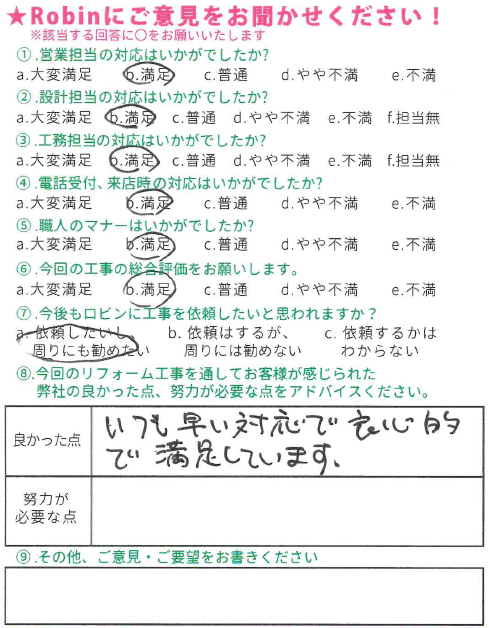 ★Robinにご意見をお聞かせください！
※該当する回答に〇をお願いいたします
①.営業担当の対応はいかがでしたか?
a.大変満足 b.満足 c.普通 d.やや不満 e.不満
②.設計担当の対応はいかがでしたか?
a.大変満足 b.満足 c.普通 d.やや不満 e.不満 f.担当無
③.工務担当の対応はいかがでしたか?
a.大変満足 b.満足 c.普通 d.やや不満 e.不満 f.担当無
④.電話受付、来店時の対応はいかがでしたか?
a.大変満足 b.満足 c.普通 d.やや不満 e.不満
⑤.職人のマナーはいかがでしたか?
a.大変満足 b.満足 c.普通 d.やや不満 e.不満
⑥.今回の工事の総合評価をお願いします。
a.大変満足 b.満足 c.普通 d.やや不満 e.不満
⑦.今後もロビンに工事を依頼したいと思われますか？
a.依頼したいし、 b.依頼はするが、 c.依頼するかは
周りにも勧めたい 周りには勧めない わからない
⑧.今回のリフォーム工事を通してお客様が感じられた
弊社の良かった点、努力が必要な点をアドバイスください。
良かった点
いつも早い対応で良心的
で満足しています。
努力が
必要な点
⑨.その他、ご意見・ご要望をお書きください